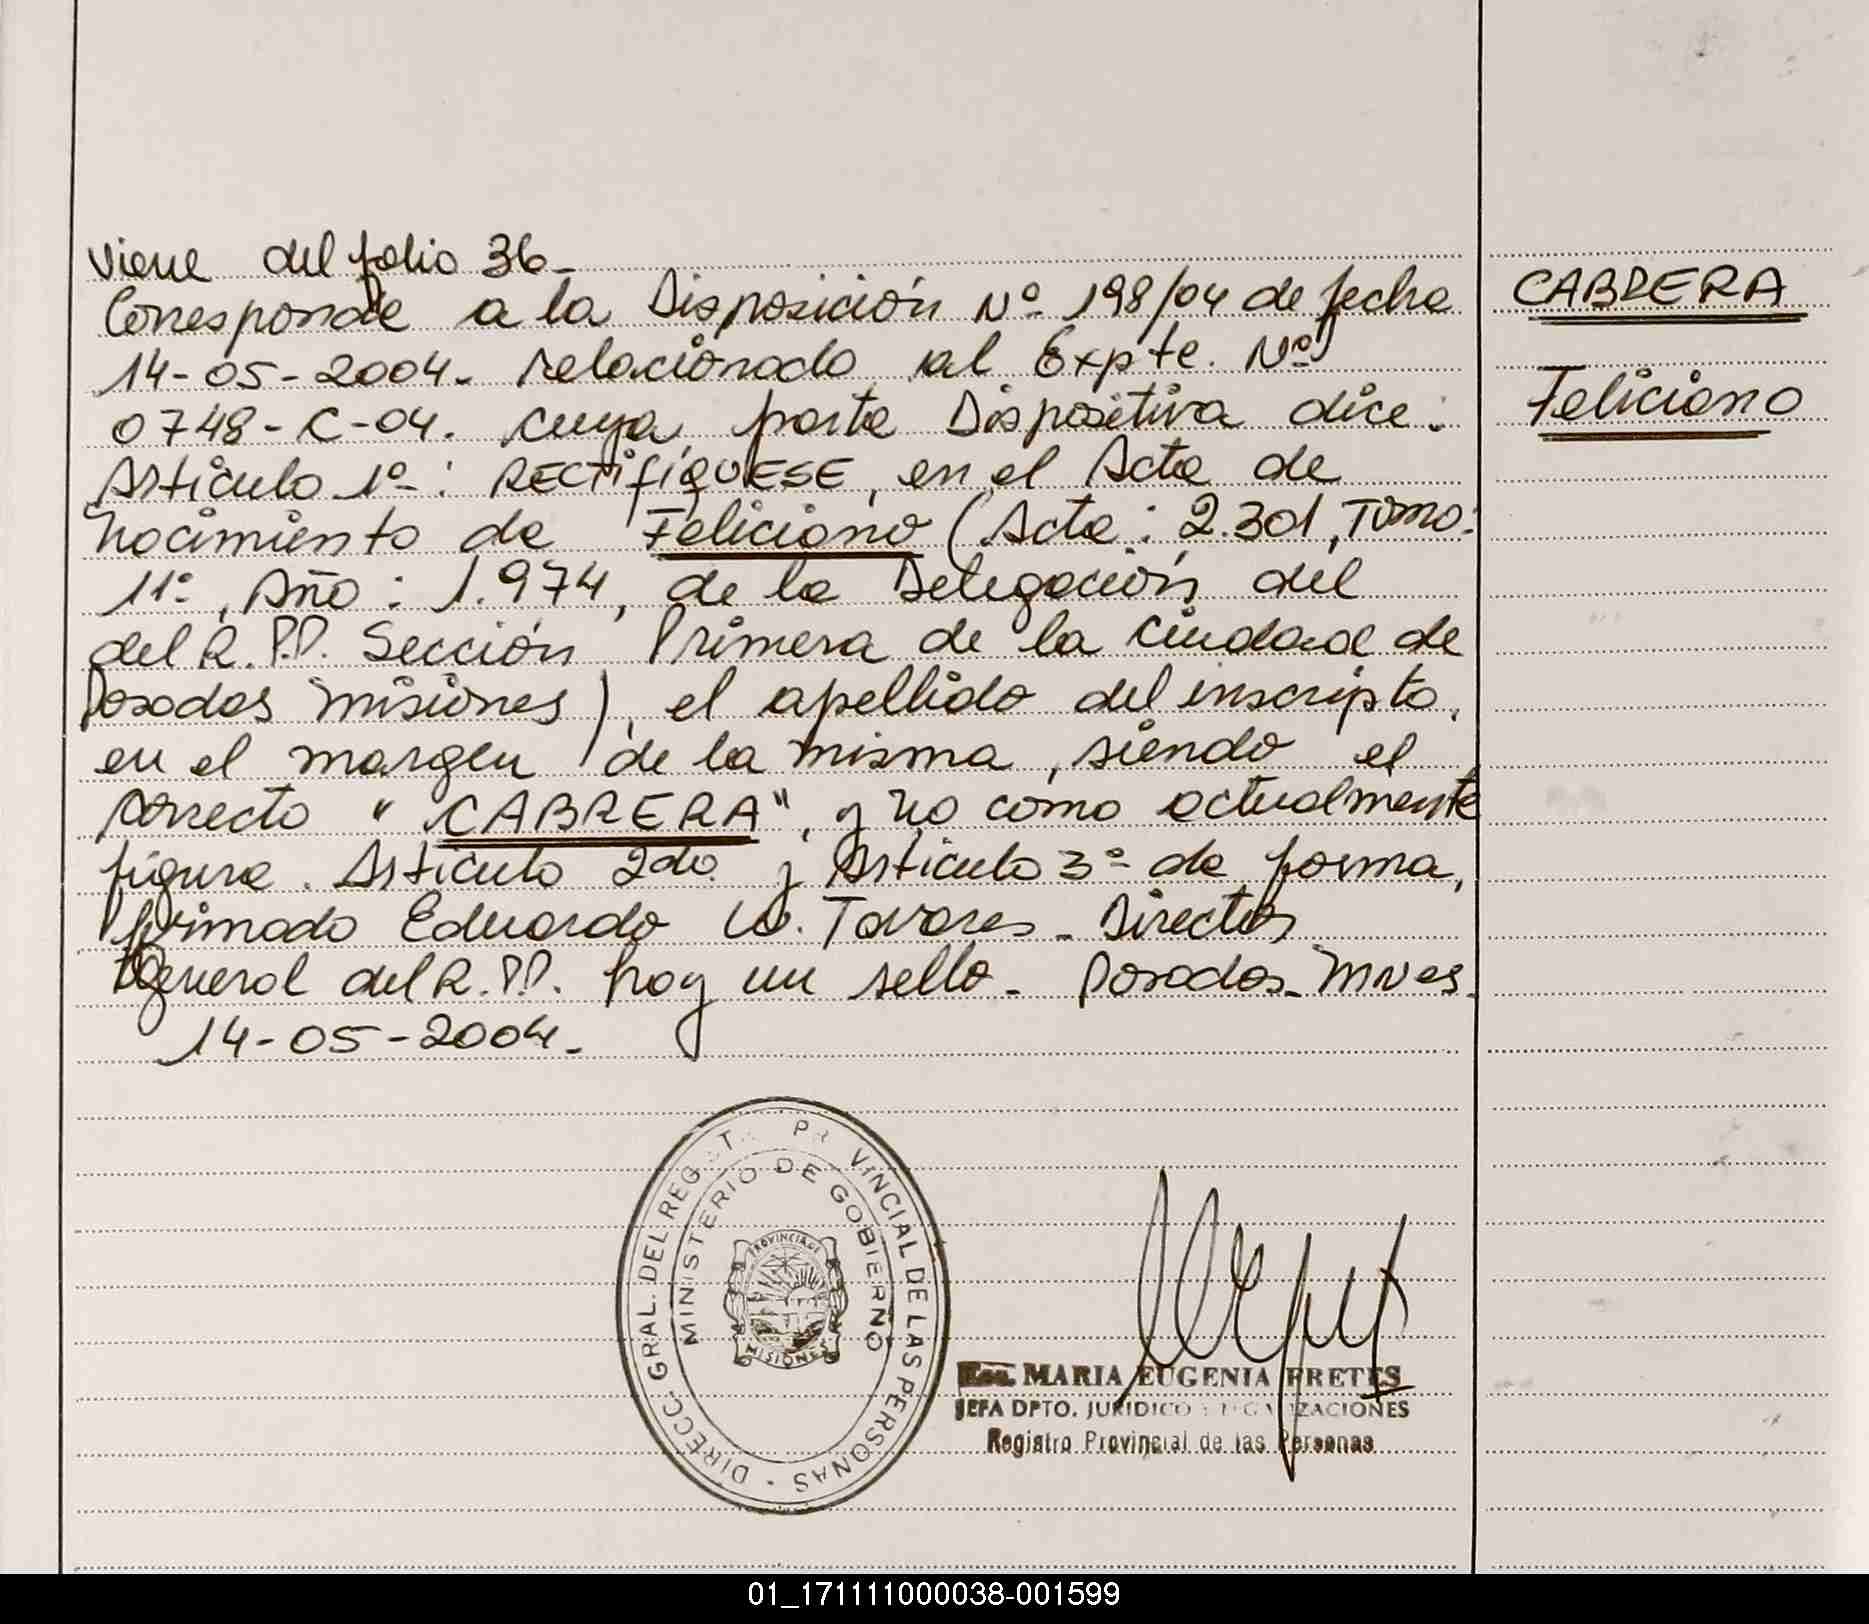 Viene del folio 36-
Corresponde a la Disposición Nº 198/04 de fecha
14-05-2004. relacionado al Expte. Nº
0748-C-04. cuya parte Dispositiva dice:
Artículo 1º: RECTIFÍQUESE, en el Acta de
Nacimiento de Feliciano (Acta: 2.301, Tomo:
11º, Año: 1.974, de la Delegación del
del R.P.P. Sección Primera de la Ciudad de
Posadas Misiones), el apellido del inscripto,
en el margen de la misma, siendo el
correcto "CABRERA", y no como actualmente
figura. Artículo 2do. y Artículo 3º de forma,
firmado Eduardo W. Tavares - Director
General del R.P.P. hay un sello - Posadas - Mnes.
14-05-2004.-
CABRERA
Feliciano
DIRECC. GRAL. DEL REGIST. PROVINCIAL DE LAS PERSONAS
MINISTERIO DE GOBIERNO
PROVINCIA DE
MISIONES
MARIA EUGENIA PRETES
JEFA DPTO. JURIDICO
Registro Provincial de las Personas
01_171111000038-001599